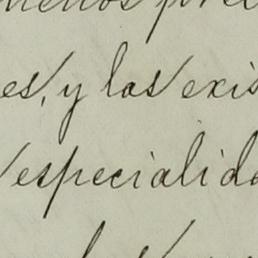 menos por el
es, y las exis
especialida